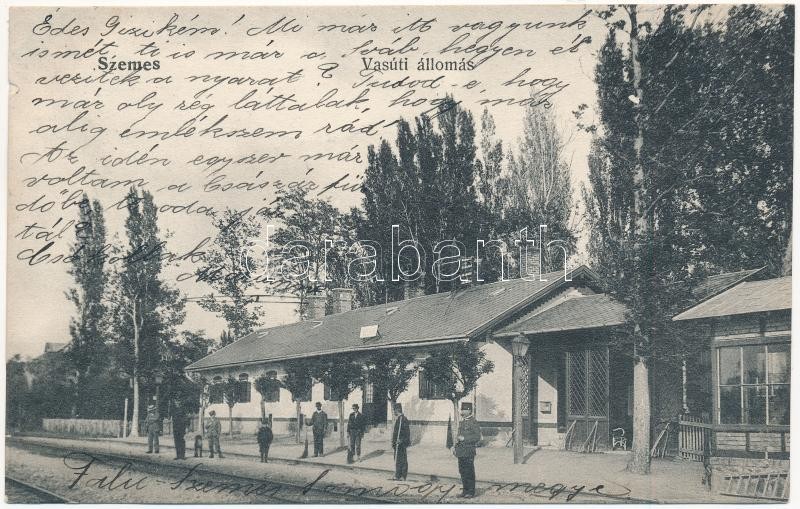 Édes Gizikém! Mi már itt vagyunk
ismét, ti is már a Sváb hegyen él
Szemes
Vasúti állomás
vezitek a nyarat? Tudod-e, hogy
már oly rég láttalak, hogy már
alig emlékszem rád
Az idén egyszer már
voltam a Császárfür
dőbe, te oda jár
tál?
Csókollak
darabanth
Falu-Szemes Somogy megye